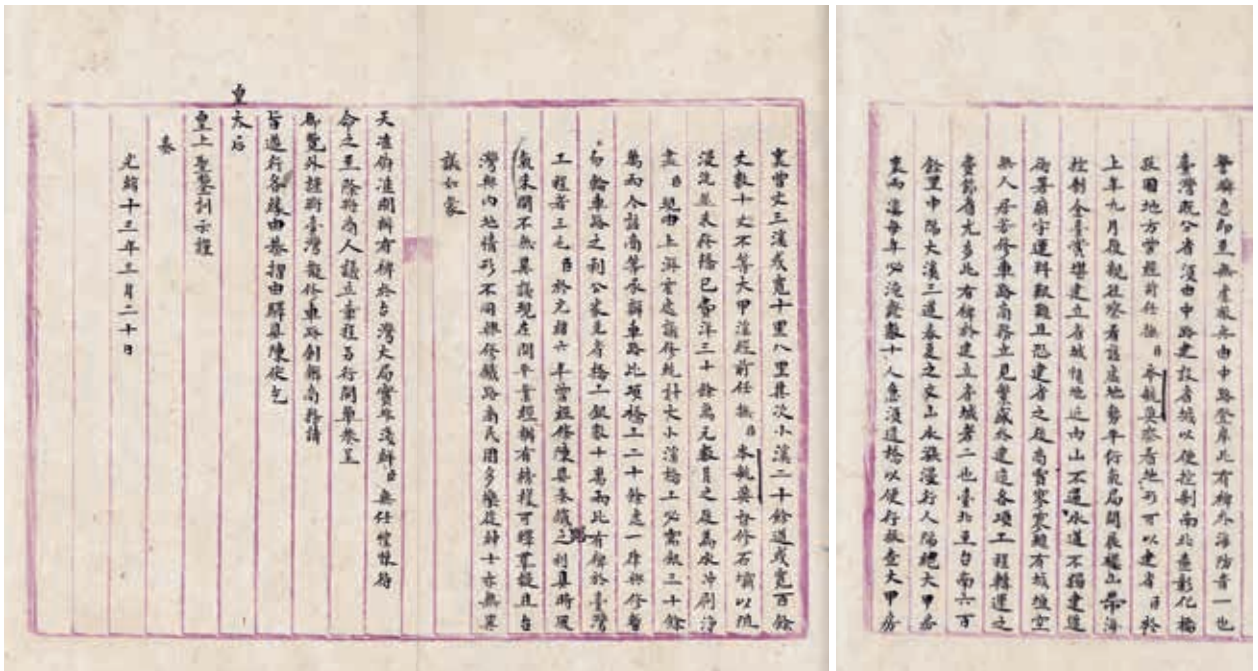 警瞬息即至無虞敵兵由中路登岸此有裨於海防者一也
臺灣既分省須由中路建設省城以便控制南北查彰化橋
孜圖地方曾經前任撫臣岑毓英察看地勢可以建省臣於
上年九月履親往察看該處地勢平衍氣局開展襟山帶海
控制全臺實堪建立省城惟地近內山不通水道不獨建造
衙署廟宇運料艱難且恐建省之後商賈寥寥雖有城垣空
無人居若修車路商務立見繁盛於建造各項工程轉運之
費節省尤多此有裨於建立省城者二也臺北至台南六百
餘里中隔大溪三道春夏之交山水漲漫行人隔絕大甲房
裏兩溪每年必淹斃數十人急須造橋以便行旅查大甲房
裏曾文三溪或寬十里八里其次小溪二十餘道或寬百餘
丈數十丈不等大甲溪經前任撫臣岑毓英督修石壩以阻
漫流並未修橋已費洋三十餘萬元數月之後為水冲刷淨
盡臣現由上游窄處議修統計大小溪橋工必需銀三十餘
萬兩今該商等承辦車路此項橋工二十餘處一律興修暫
勿輪車路之利公家先省橋工銀數十萬兩此有裨於臺灣
工程者三也臣於光緒六年曾經條陳具奏鐵路之利其時風
氣未開不無異議現在開平業經辦有程可釋羣疑且台
灣與內地情形不同興修鐵路商民固多樂從紳士亦無異
議如蒙
天准俯准開辦有裨於台灣大局實非淺鮮臣無任惶悚待
命之至除將商人議立章程另行開單恭呈
御覽外謹將臺灣擬修車路創辦商務請
旨遵行各緣由恭摺由驛具陳伏乞
皇太后
皇上聖鑒訓示謹
奏
光緒十三年三月二十日